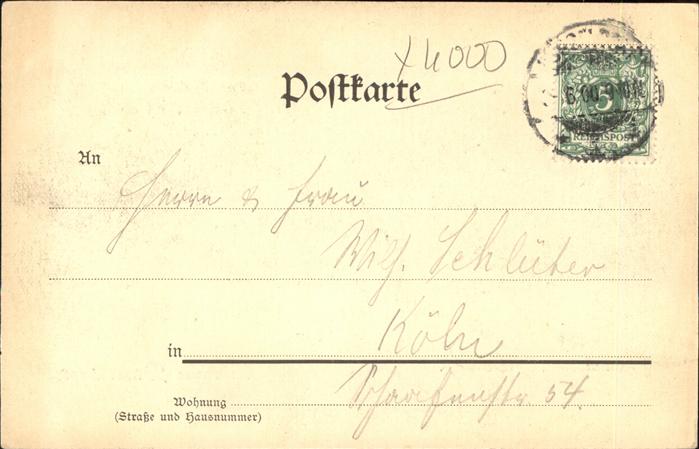 x 4000
Postkarte
5
6.00.9-10N.
REICHSPOST
An
Herrn & Frau
Wilh. Schlüter
in Köln
Wohnung
(Straße und Hausnummer)
54.